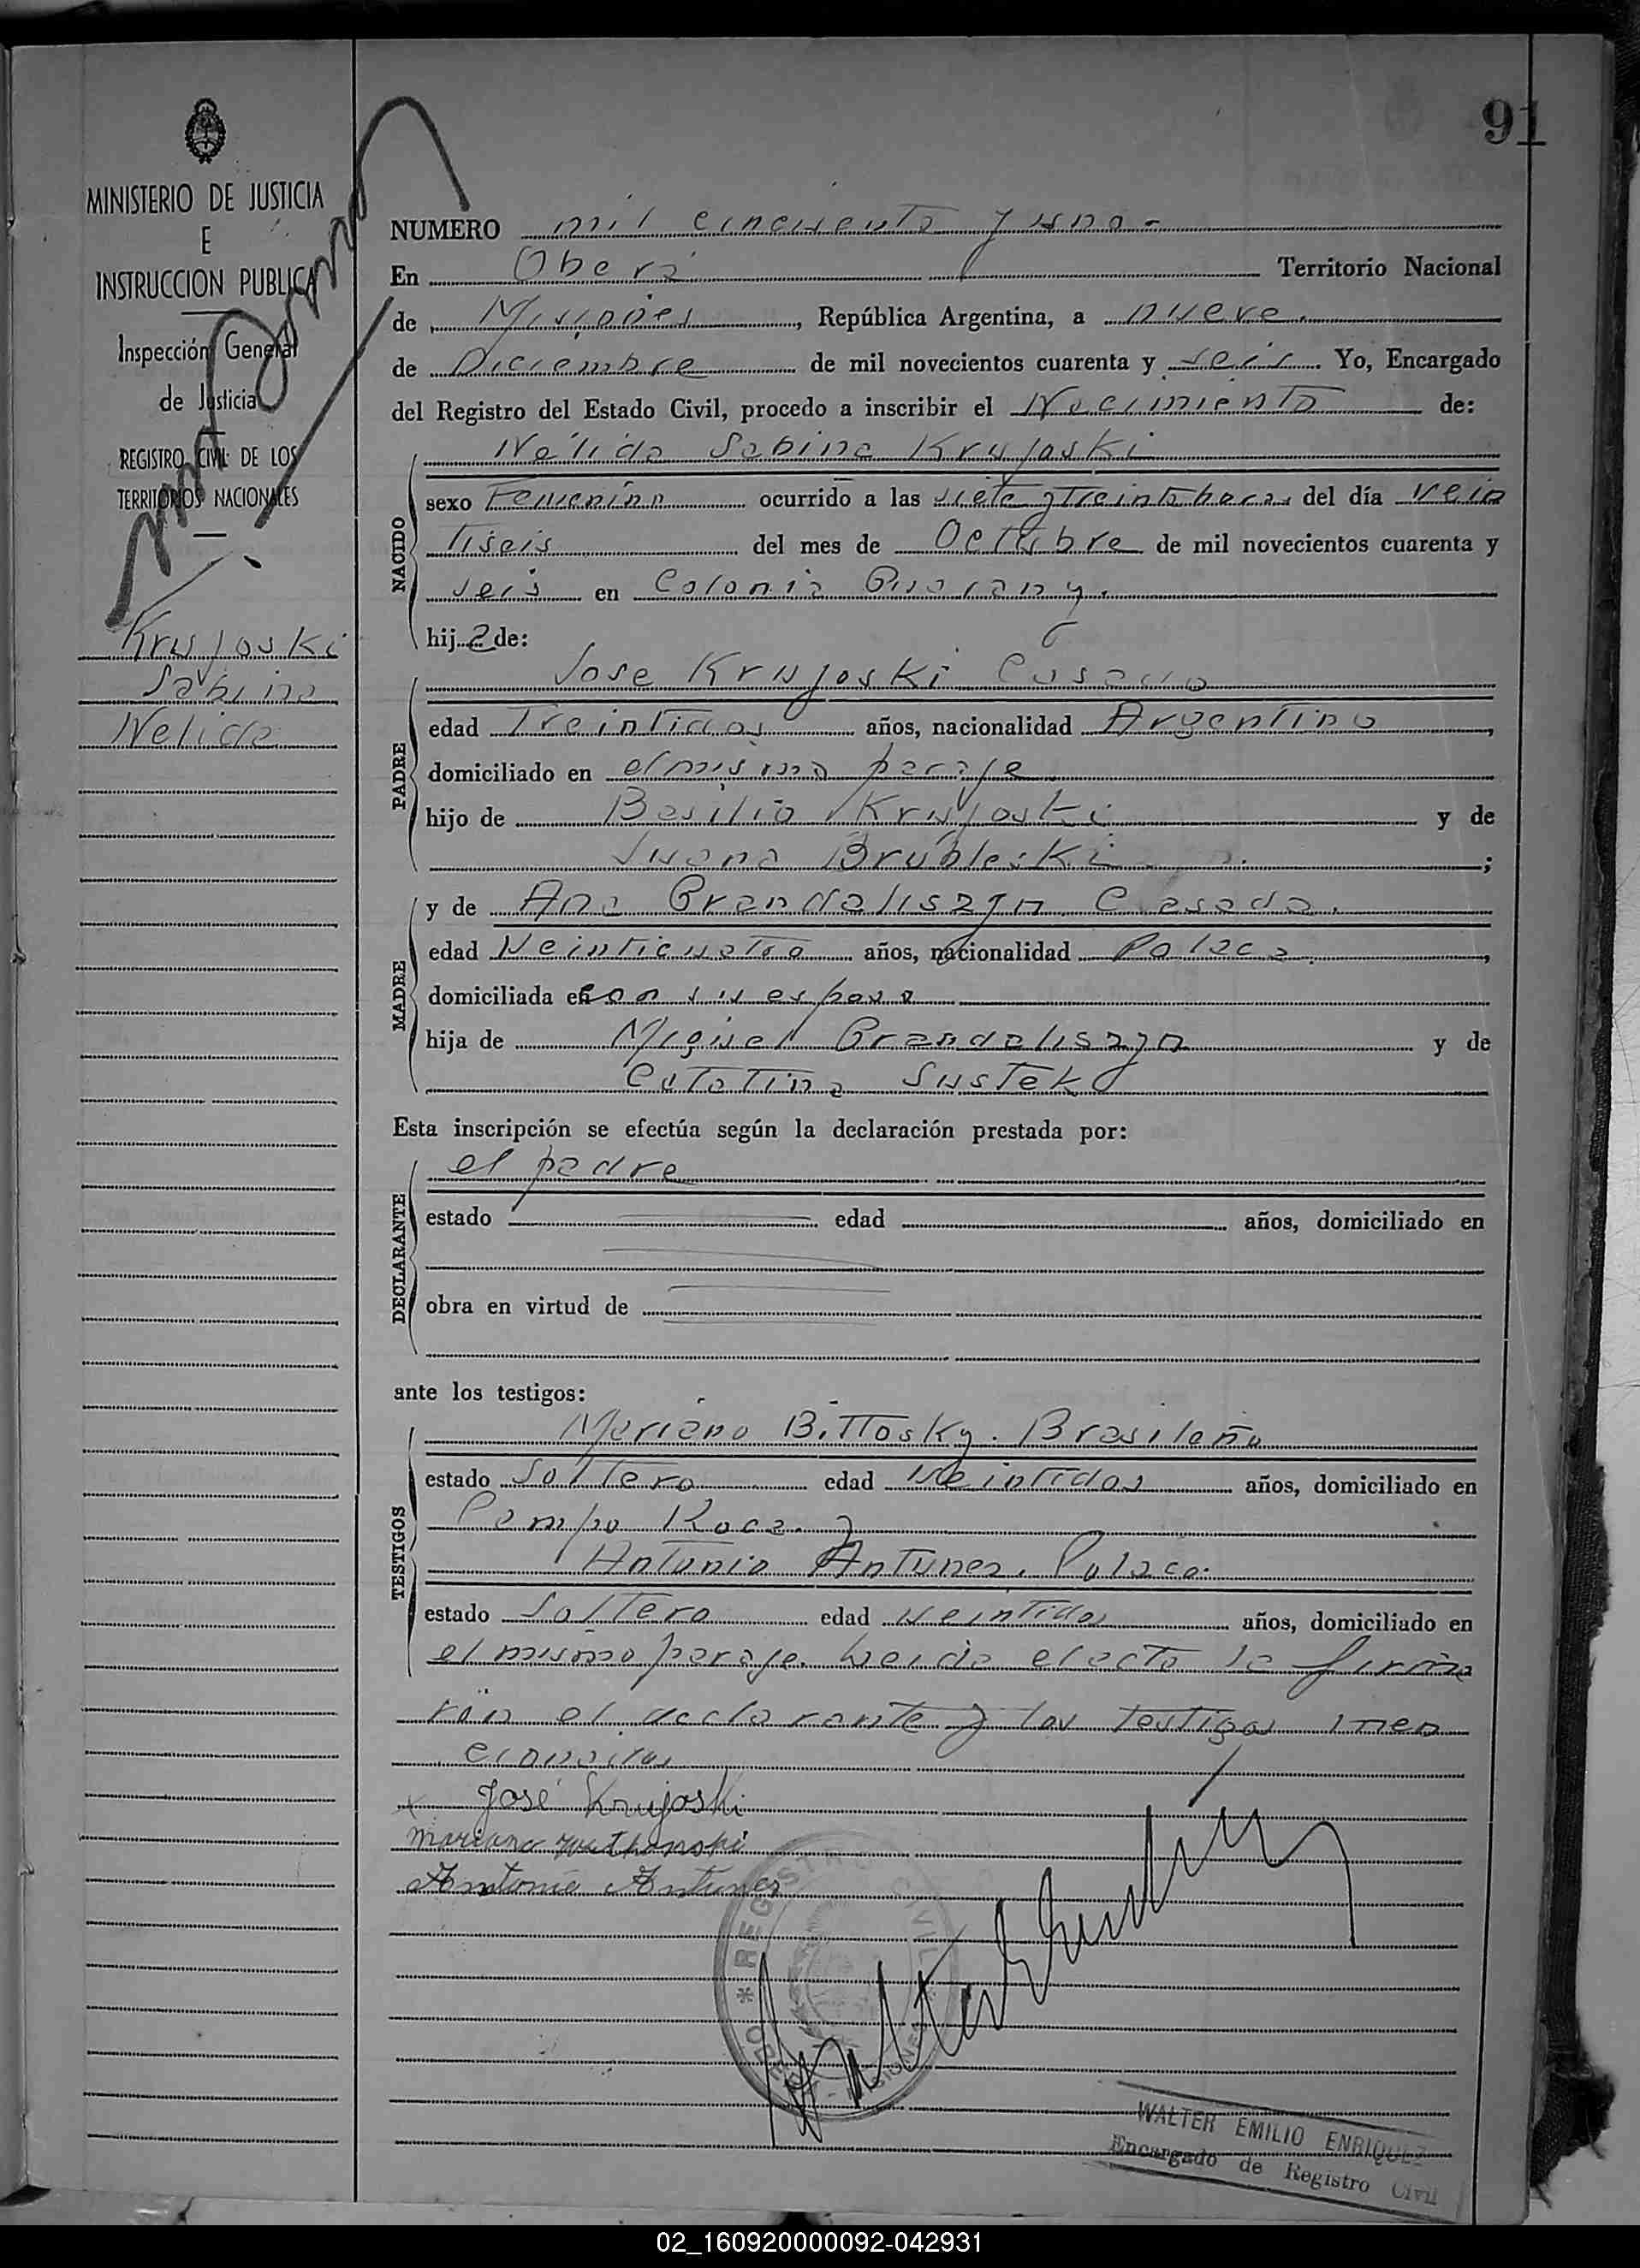 91
MINISTERIO DE JUSTICIA
E
INSTRUCCION PUBLICA
Inspección General
de Justicia
REGISTRO CIVIL DE LOS
TERRITORIOS NACIONALES
Krujoski
Sabina
Nelida
NUMERO mil cincuenta y uno-
En Oberá Territorio Nacional
de Misiones, República Argentina, a nueve.
de Diciembre de mil novecientos cuarenta y seis. Yo, Encargado
del Registro del Estado Civil, procedo a inscribir el Nacimiento de:
NACIDO
Nélida Sabina Krujoski
sexo Femenino ocurrido a las siete y treinta horas del día vein
tiseis del mes de Octubre de mil novecientos cuarenta y
seis en Colonia Guarany.
hija de:
PADRE
Jose Krujoski Casado
edad Treintidos años, nacionalidad Argentino,
domiciliado en el mismo paraje
hijo de Basilio Krujoski y de
Juana Brubleski;
MADRE
y de Ana Grandaliszyn Casada.
edad Veinticuatro años, nacionalidad Polaca,
domiciliada en con su esposo
hija de Miguel Grandaliszyn y de
Catatina Sustek
Esta inscripción se efectúa según la declaración prestada por:
DECLARANTE
el padre
estado edad años, domiciliado en
obra en virtud de
ante los testigos:
TESTIGOS
Mariano Bittosky. Brasileño
estado Soltero edad veintidos años, domiciliado en
Pampo Roca. y
Antonio Antunez. Polaco.
estado Soltero edad veintidos años, domiciliado en
el mismo paraje. Leida el acta la firma
ron el declarante y los testigos men
cionados
José Krujoski
mariano
Antonio Antunez
REGISTRO CIVIL
OBERA - MISIONES
WALTER EMILIO ENRIQUEZ
Encargado de Registro Civil
02_160920000092-042931